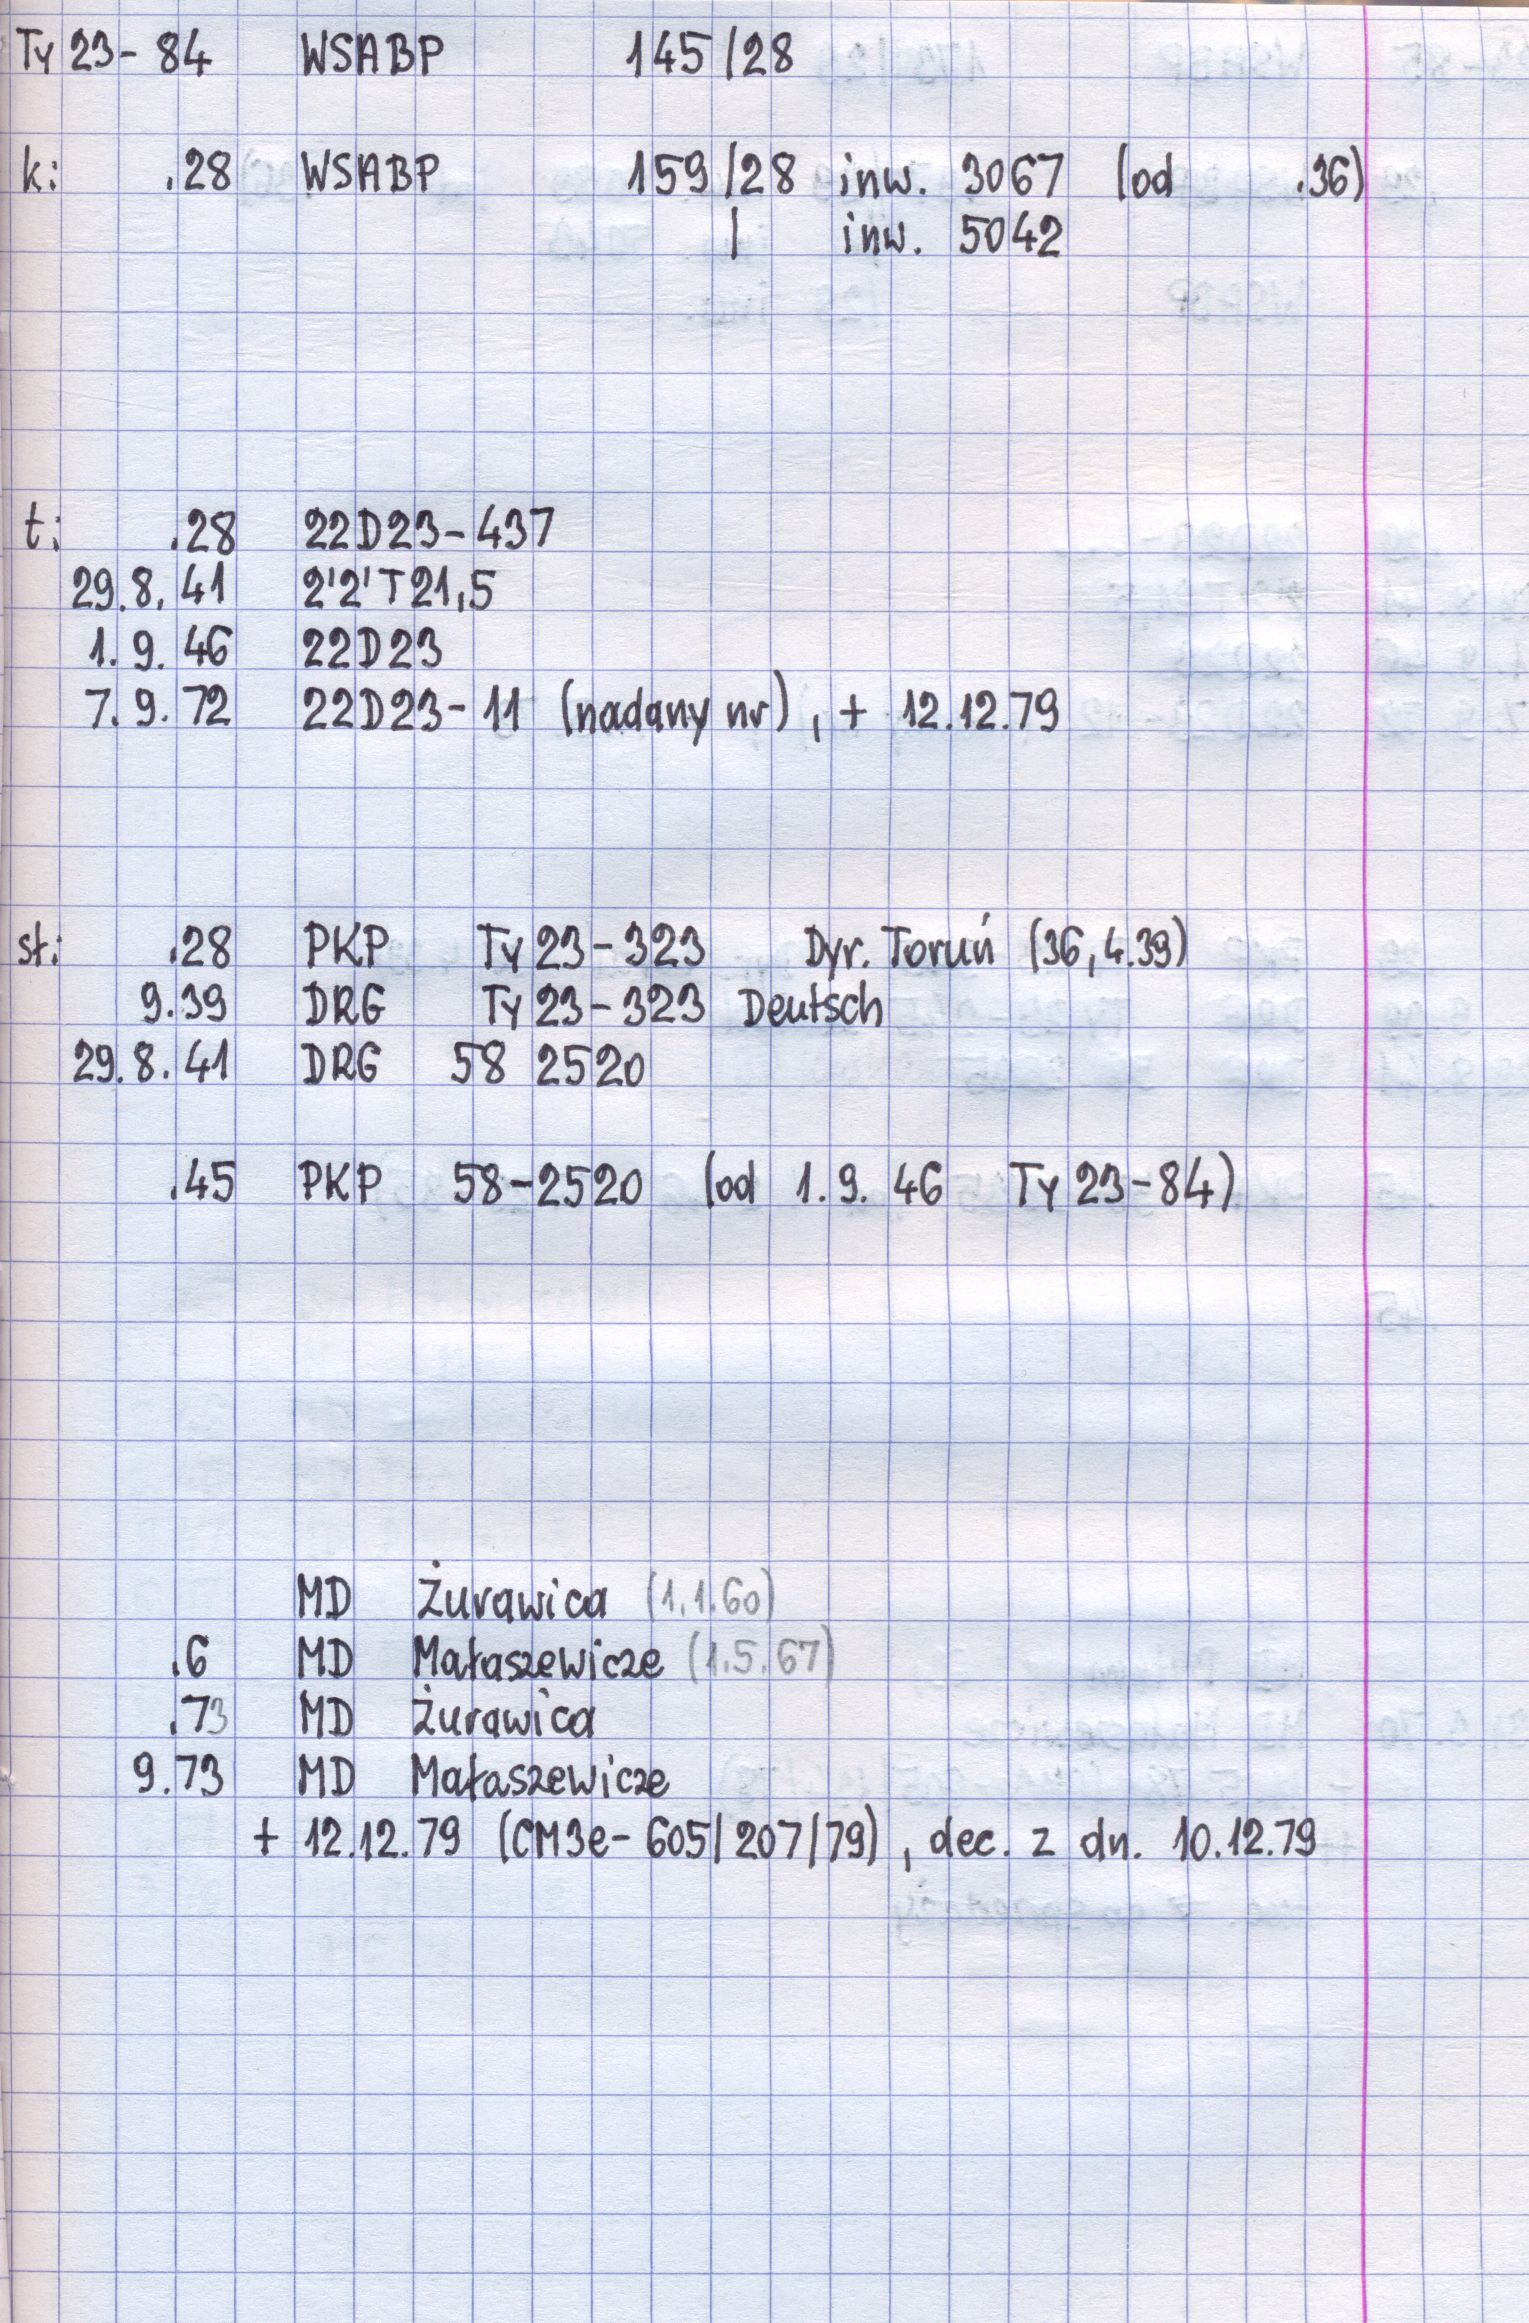 Ty 23-84 WSABP 145/28
k: .28 WSABP 159/28 inw. 3067 (od .36)
/ inw. 5042
t: .28 22D23-437
29.8.41 2'2'T21,5
1.9.46 22D23
7.9.72 22D23-11 (nadany nr), + 12.12.79
st: .28 PKP Ty 23-323 Dyr. Toruń (36, 4.39)
9.39 DRG Ty 23-323 Deutsch
29.8.41 DRG 58 2520
.45 PKP 58-2520 (od 1.9.46 Ty 23-84)
MD Żurawica (1.1.60)
.6 MD Małaszewicze (1.5.67)
.73 MD Żurawica
9.73 MD Małaszewicze
+ 12.12.79 (CM3e-605/207/79), dec. z dn. 10.12.79